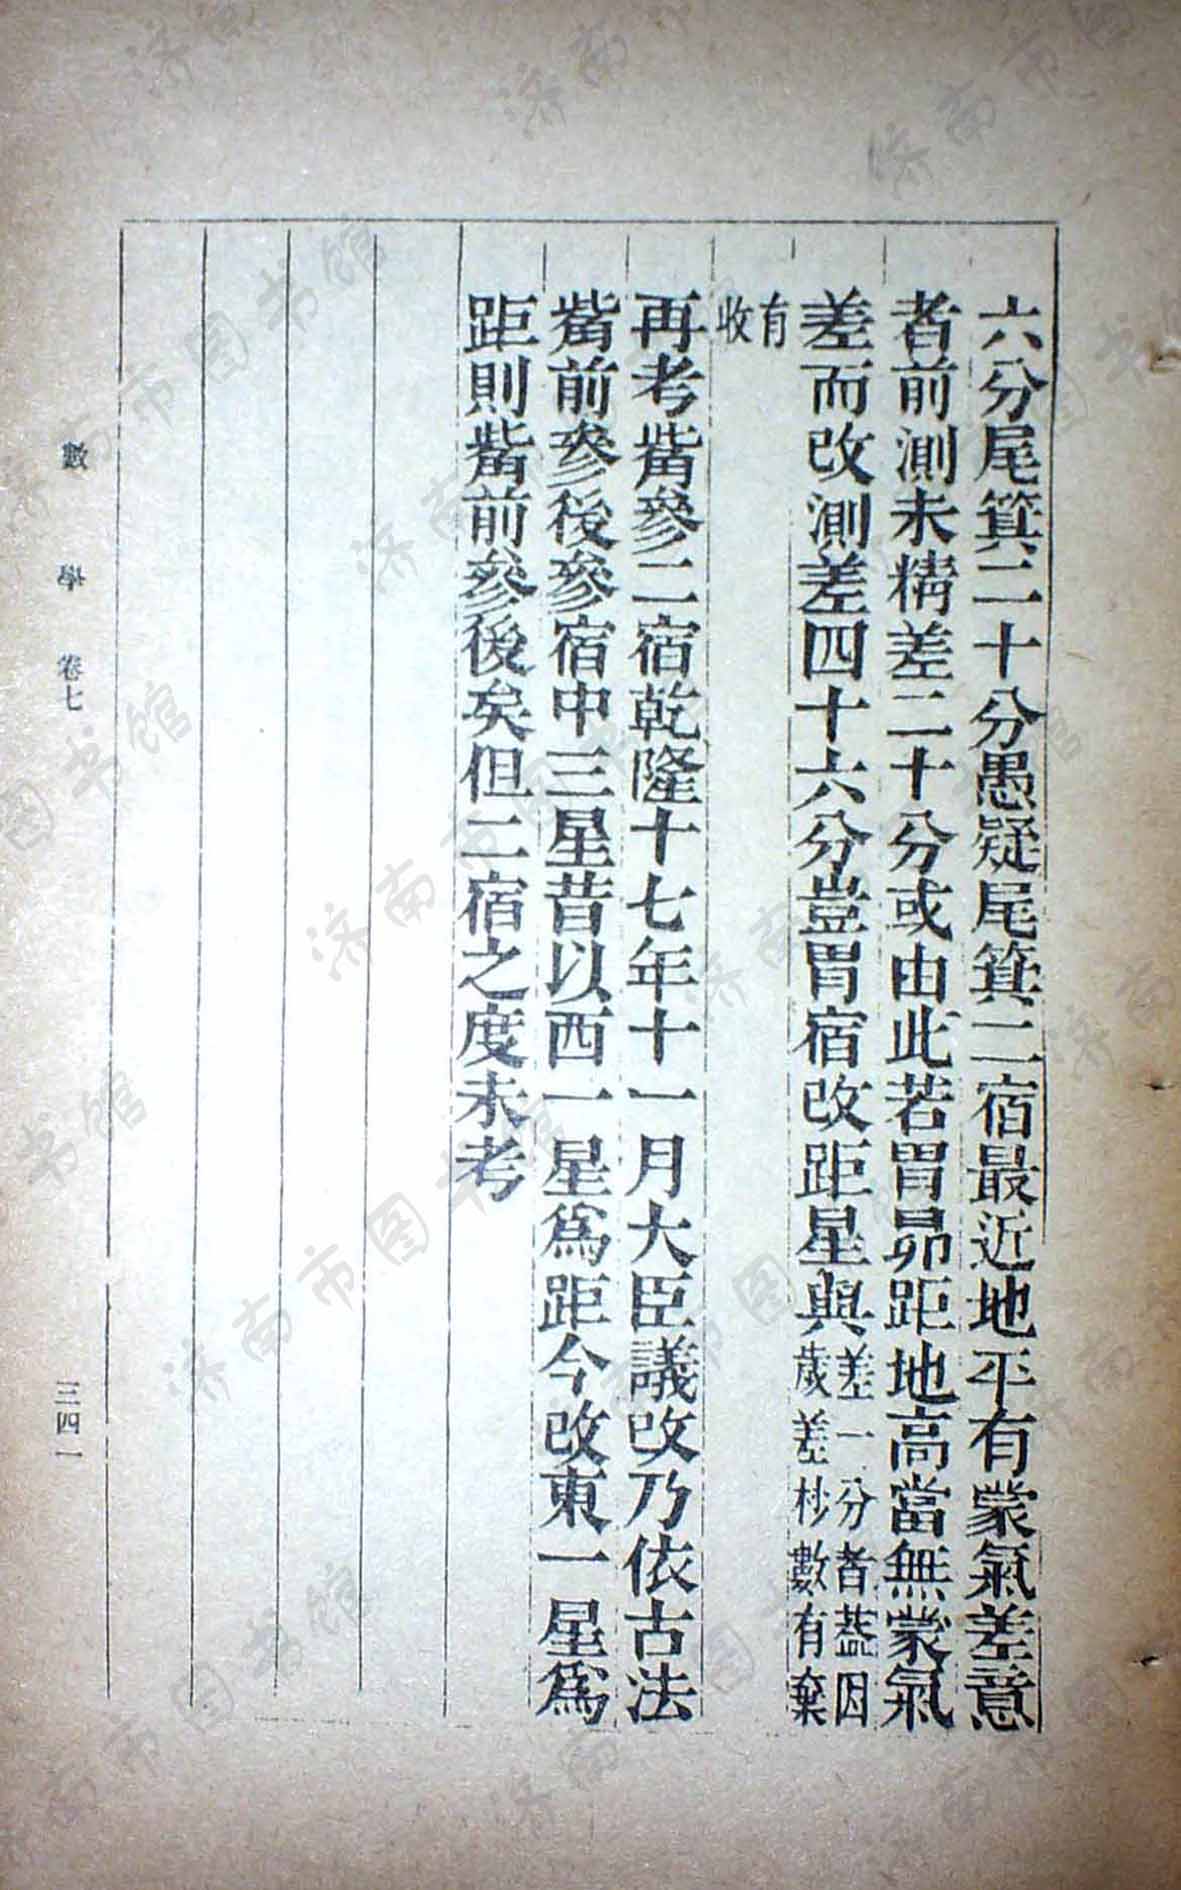 六分尾箕二十分愚疑尾箕二宿最近地平有蒙氣差意
者前測未精差二十分或由此若胃昴距地高當無蒙氣
差而改測差四十六分豈胃宿改距星與
差一分者葢因
歲差杪數有棄
有
收
再考觜參二宿乾隆十七年十一月大臣議改乃依古法
觜前參後參宿中三星昔以西一星爲距今改東一星爲
距則觜前參後矣但二宿之度未考
數學 卷七
三四一
济南市图书馆